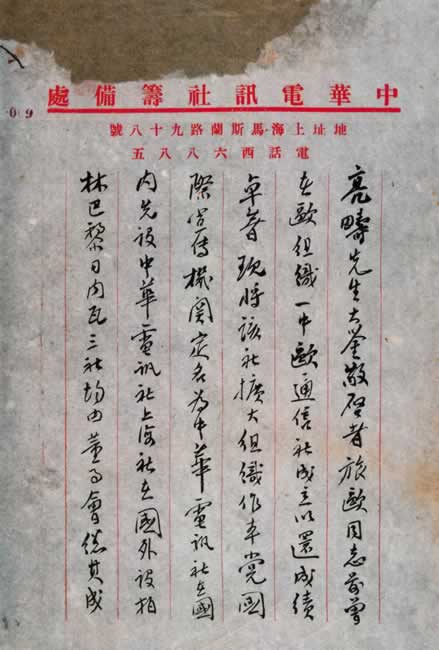 中華電訊社籌備處
地址上海·馬斯蘭路九十八號
電話西六八八五
亮疇先生大鑒敬啓者旅歐同志前曾
在歐組織一中歐通信社成立以還成績
卓著現將該社擴大組織作本黨國
際宣傳機關定名為中華電訊社在國
內先設中華電訊社上海社在國外設柏
林巴黎日內瓦三社均由董事會總其成